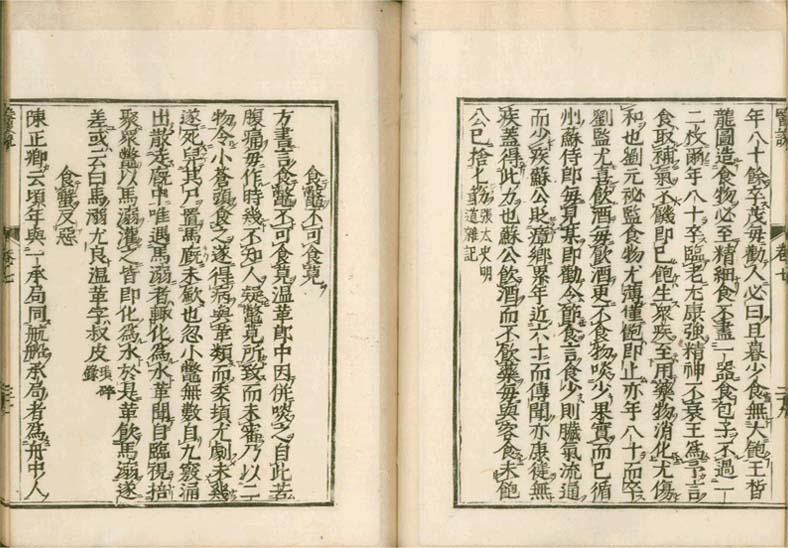 醫說
卷七
二十九
年八十餘卒茂毎勸人必曰且暮少食無大飽王晳
龍圖造食物必至精細食不盡一器食包子不過一
二枚爾年八十卒臨老尤康強精神不衰王爲予言
食取補氣不饑即已飽生衆疾至用藥物消化尤傷
和也劉元祕監食物尤薄僅飽即止亦年八十而卒
劉監尤喜飲酒毎飲酒更不食物啖少果實而已循
州蘇侍郎毎見某即勸令節食言食少則臟氣流通
而少疾蘇公貶瘴鄉累年近六十二而傳聞亦康健無
疾蓋得此力也蘇公飲酒而不飲藥毎與客食未飽
公已捨匕筯張太史明道雜記
食鼈不可食莧
方書言食鼈不可食莧温革郎中因併啖之自此苦
腹痛毎作時幾不知人疑鼈莧所致而未審乃以二
物令小蒼頭食之遂得病與革類而委頓尤劇未幾
遂死舁其尸置馬廄未歛也忽小鼈無數自九竅涌
出散走廄中唯遇馬溺者輒化爲水革聞自臨視掊
聚衆鼈以馬溺灌之皆即化爲水於是革飲馬溺遂
差或云白馬溺尤良温革字叔皮瑣碎錄
食蟹反惡
陳正卿云頃年與一承局同航船承局者爲舟中人
醫說
卷七
三十